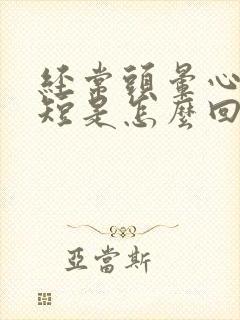 經常頭暈心
短是怎麼回
亞當斯